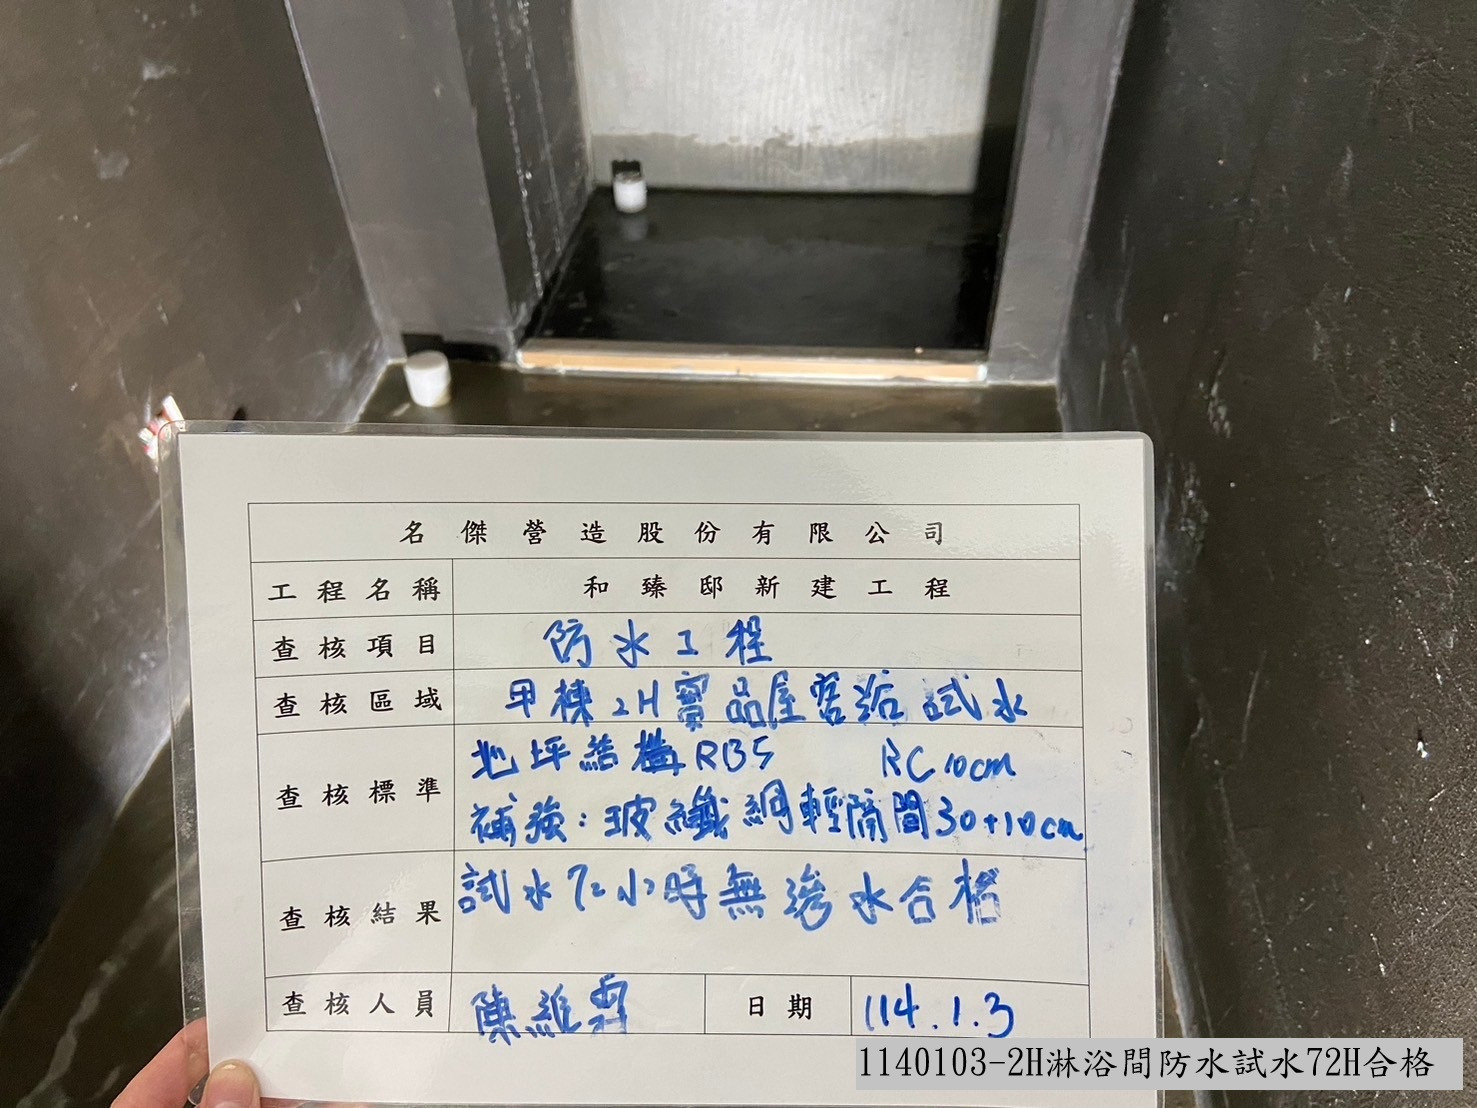 名傑營造股份有限公司
工程名稱 和臻邸新建工程
查核項目 防水工程
查核區域 甲棟2H實品屋客浴試水
查核標準 地坪結構RBS RC10cm
補強:玻纖網輕隔間30+10cm
查核結果 試水72小時無滲水合格
查核人員 陳維 日期 114.1.3
1140103-2H淋浴間防水試水72H合格